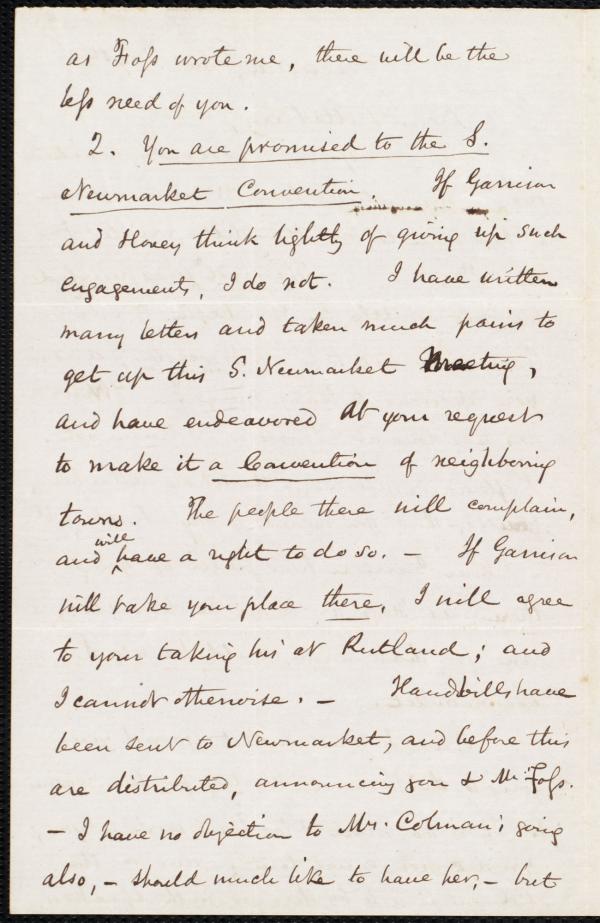 as Foss wrote me, there will be the
less need of you.
2. You are promised to the S.
Newmarket Convention. If Garrison
and Hovey think lightly of giving up such
engagements, I do not. I have written
many letters and taken much pains to
get up this S. Newmarket Meeting,
and have endeavored at your request
to make it a Convention of neighboring
towns. The people there will complain,
and will have a right to do so. - If Garrison
will take your place there, I will agree
to your taking his at Rutland; and
I cannot otherwise. - Handbills have
been sent to Newmarket, and before this
are distributed, announcing you & Mr. Foss.
- I have no objection to Mrs. Colman's going
also, - should much like to have her, - but